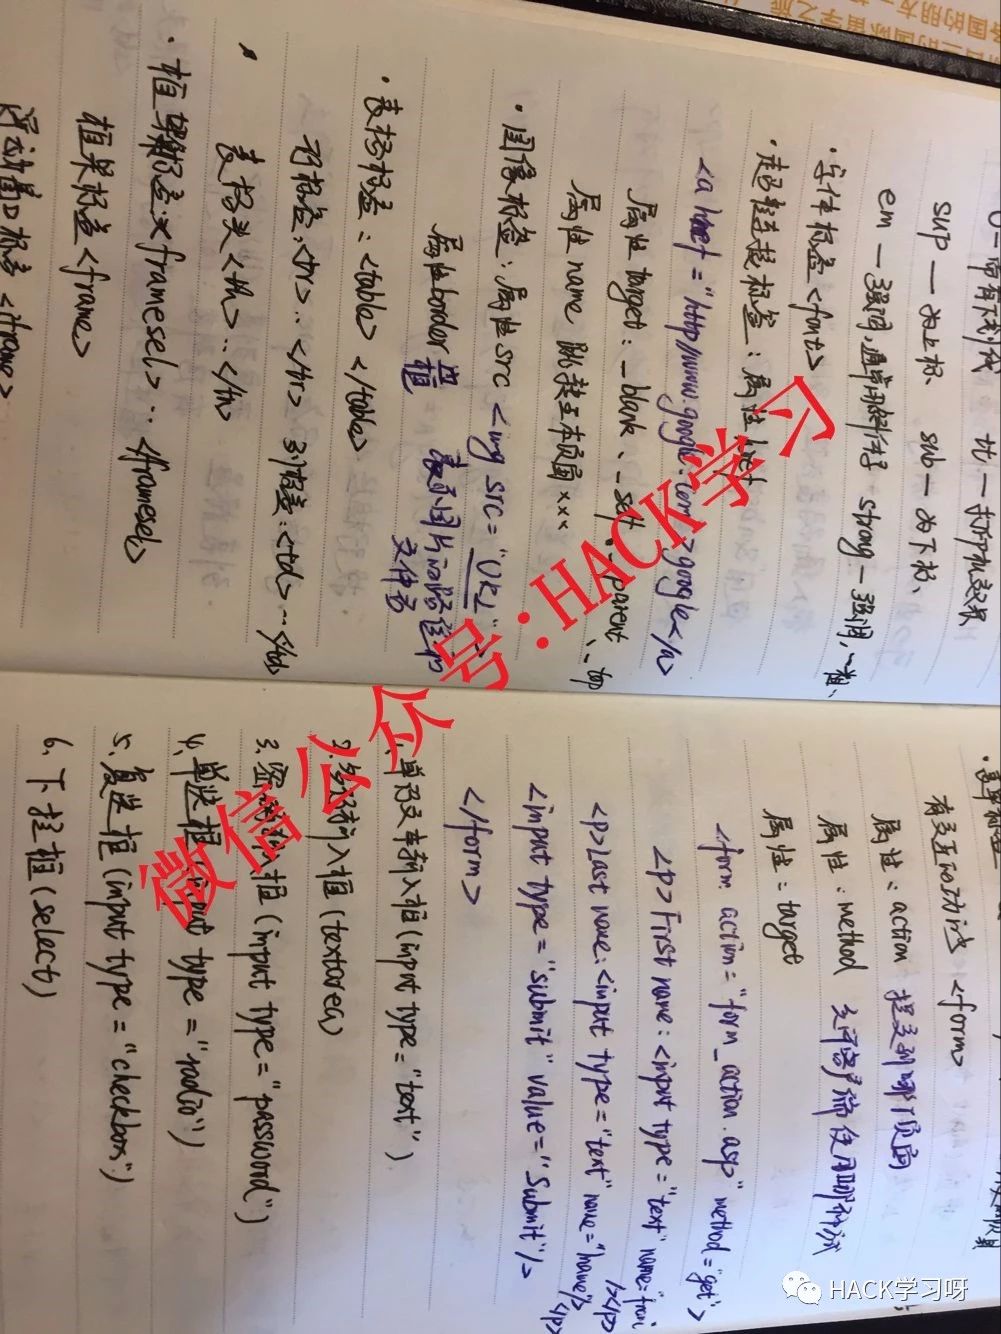 sup — 为上标 sub — 为下标、
em — 强调,通常用斜体 strong — 强调,一粗、
· 字体标签 <font>
· 超链接标签：属性 href
<a href = "http://www.google.com">google</a>
属性 target：_blank、_self、_parent、_top
属性 name 跳转至本页面 xxx
· 图像标签：属性 src <img src = "URL">
表示图片的路径和
文件名
属性 border 边框
· 表格标签：<table> </table>
行标签：<tr>…</tr> 列标签：<td>…</td>
表格头 <th>…</th>
· 框架标签：<framesel>…</framesel>
框架标签 <frame>
浮动窗口标签 <iframe>
· 表单标签
有交互的功能 <form>
属性：action 提交到哪个页面
属性：method 允许客户端使用哪种方式
属性：target
<form action = "form_action.asp" method = "get">
<p>First name：<input type = "text" name=
/></p>
<p>last name：<input type = "text" name = "lname"/></p>
<input type = "submit" value = "Submit"/>
</form>
1、单行文本输入框 (input type = "text")
2、多行输入框 (textarea)
3、密码输入框 (input type = "password")
4、单选框 (input type = "radio")
5、复选框 (input type = "checkbox")
6、下拉框 (select)
微信公众号:HACK学习
HACK学习呀